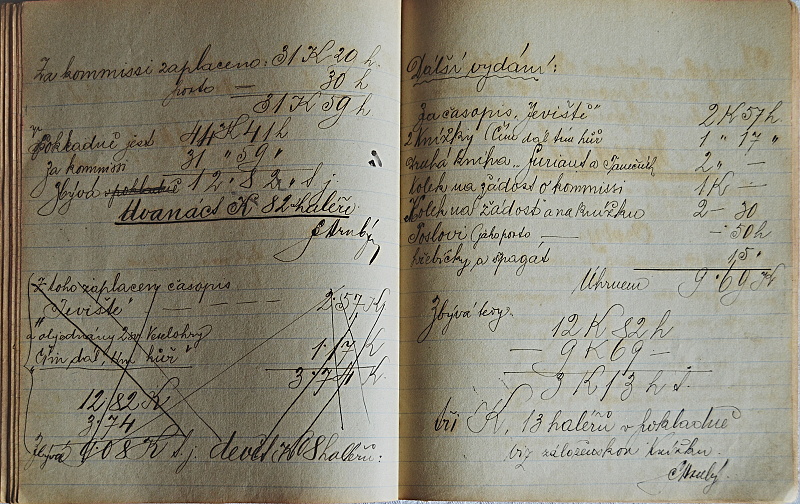 Za kommissi zaplaceno: 31 K 20 h.
porto — 30 h
31 K 59 h
V pokladně jest 44 K 41 h
Za kommisi 31 " 59 "
Zbývá pokladně 12 · 82 · t. j.
Dvanáct K 82 haleře.
Z toho zaplaceny časopis
"Jeviště" — — — — 2·57 K
a objednány 2 sv. Veselohry
"Čím dál, tím hůř" 1·17 K
3·74 K.
12 82 K
3 74
Zbývá 9 08 K t. j. devět K 8 haleřů:
Další vydání:
Za časopis "Jeviště" 2 K 57 h
2 Knížky (Čím dál tím hůř 1 " 17 "
druhá kniha „ Furiant a Tanečník 2 „ —
kolek na žádost o kommissi 1 K —
Kolek na žádost a na knížku 2 — 30
Poslovi (jako porto — — 50 h
hřebíčky a špagát 15 "
Úhrnem 9·69 K
Zbývá tedy.
12 K 82 h
— 9 K 69 —
3 K 13 h t.
tři K, 13 haleřů v pokladně
viz záloženskou knížku.